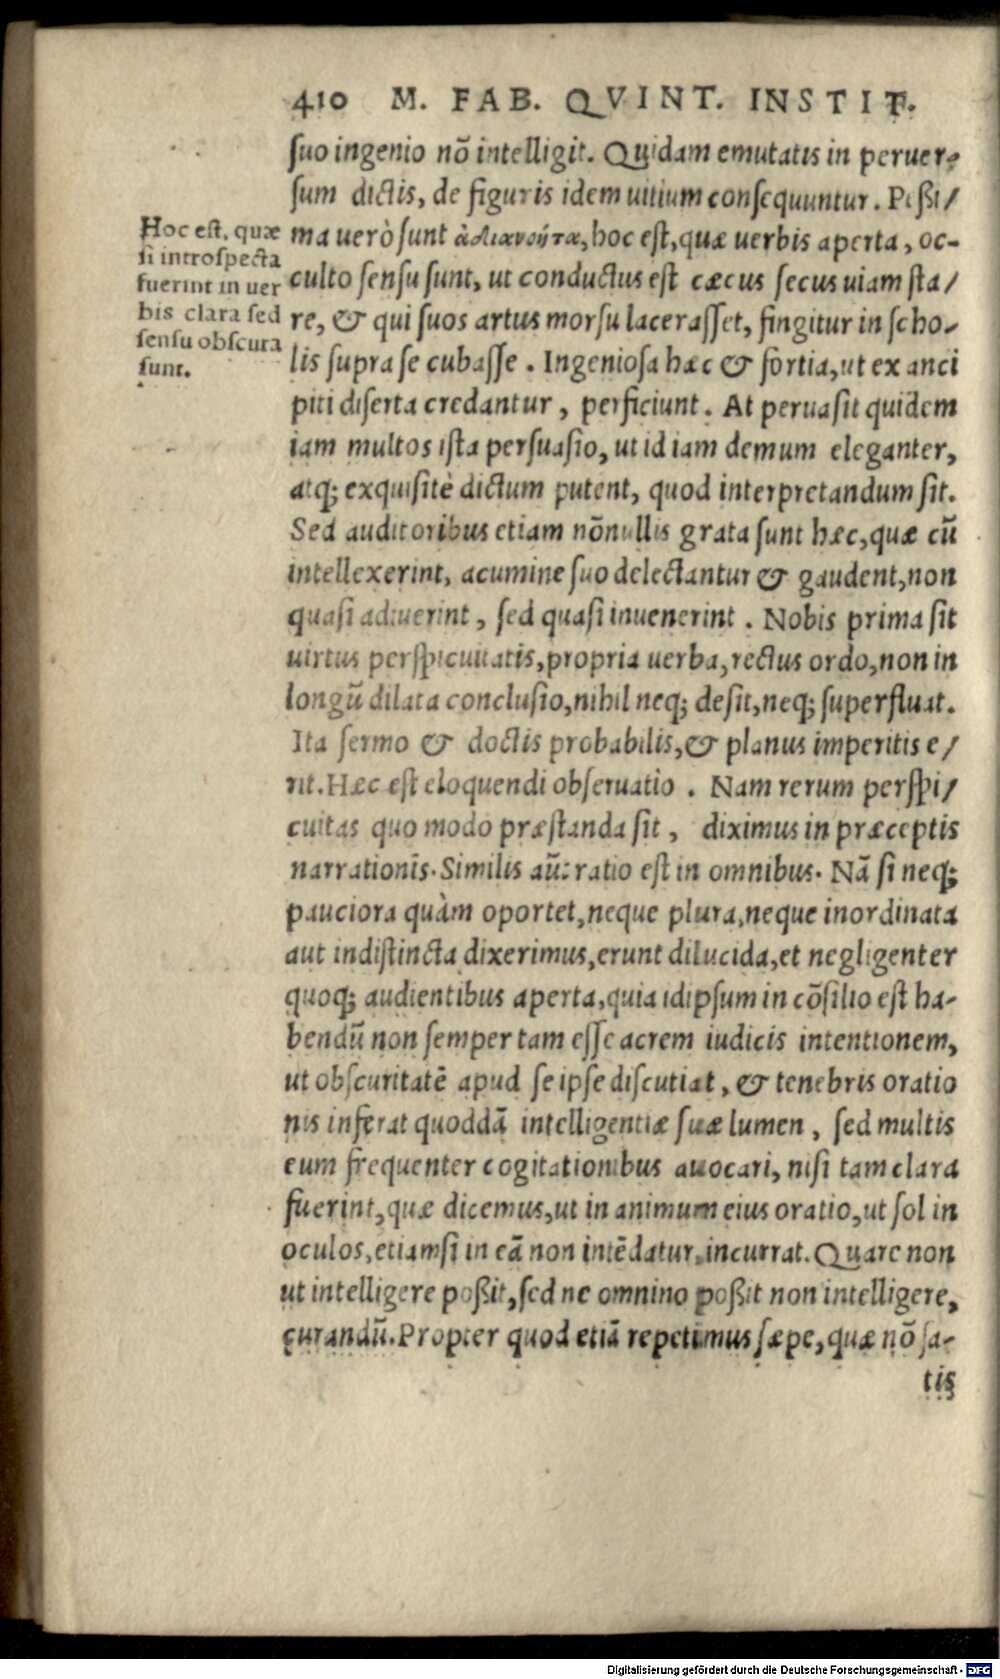 410 M. FAB. QVINT. INSTIT.
ſuo ingenio nō intelligit. Quidam emutatis in peruer⸗
ſum dictis, de figuris idem uitium conſequuntur. Peßi/
Hoc eſt, quæ
ſi introſpecta
fuerint in uer
bis clara ſed
ſenſu obſcura
ſunt.
ma uerò ſunt ἀδιανόητα, hoc eſt, quæ uerbis aperta, oc-
culto ſenſu ſunt, ut conductus eſt cæcus ſecus uiam ſta/
re, & qui ſuos artus morſu laceraſſet, fingitur in ſcho-
lis ſupra ſe cubaſſe. Ingenioſa hæc & fortia, ut ex anci
piti diſerta credantur, perficiunt. At peruaſit quidem
iam multos iſta perſuaſio, ut id iam demum eleganter,
atq; exquiſitè dictum putent, quod interpretandum ſit.
Sed auditoribus etiam nōnullis grata ſunt hæc, quæ cū
intellexerint, acumine ſuo delectantur & gaudent, non
quaſi adiuerint, ſed quaſi inuenerint. Nobis prima ſit
uirtus perſpicuitatis, propria uerba, rectus ordo, non in
longū dilata concluſio, nihil neq; deſit, neq; ſuperfluat.
Ita ſermo & doctis probabilis, & planus imperitis e/
rit. Hæc eſt eloquendi obſeruatio. Nam rerum perſpi/
cuitas quo modo præſtanda ſit, diximus in præceptis
narrationis. Similis aūt ratio eſt in omnibus. Nā ſi neq;
pauciora quàm oportet, neque plura, neque inordinata
aut indiſtincta dixerimus, erunt dilucida, et negligenter
quoq; audientibus aperta, quia idipſum in cōſilio eſt ha-
bendū non ſemper tam eſſe acrem iudicis intentionem,
ut obſcuritatē apud ſe ipſe diſcutiat, & tenebris oratio
nis inferat quoddā intelligentiæ ſuæ lumen, ſed multis
eum frequenter cogitationibus auocari, niſi tam clara
fuerint, quæ dicemus, ut in animum eius oratio, ut ſol in
oculos, etiamſi in eā non intēdatur, incurrat. Quare non
ut intelligere poßit, ſed ne omnino poßit non intelligere,
curandū. Propter quod etiā repetimus ſæpe, quæ nō ſa-
tis
Digitalisierung gefördert durch die Deutsche Forschungsgemeinschaft - DFG